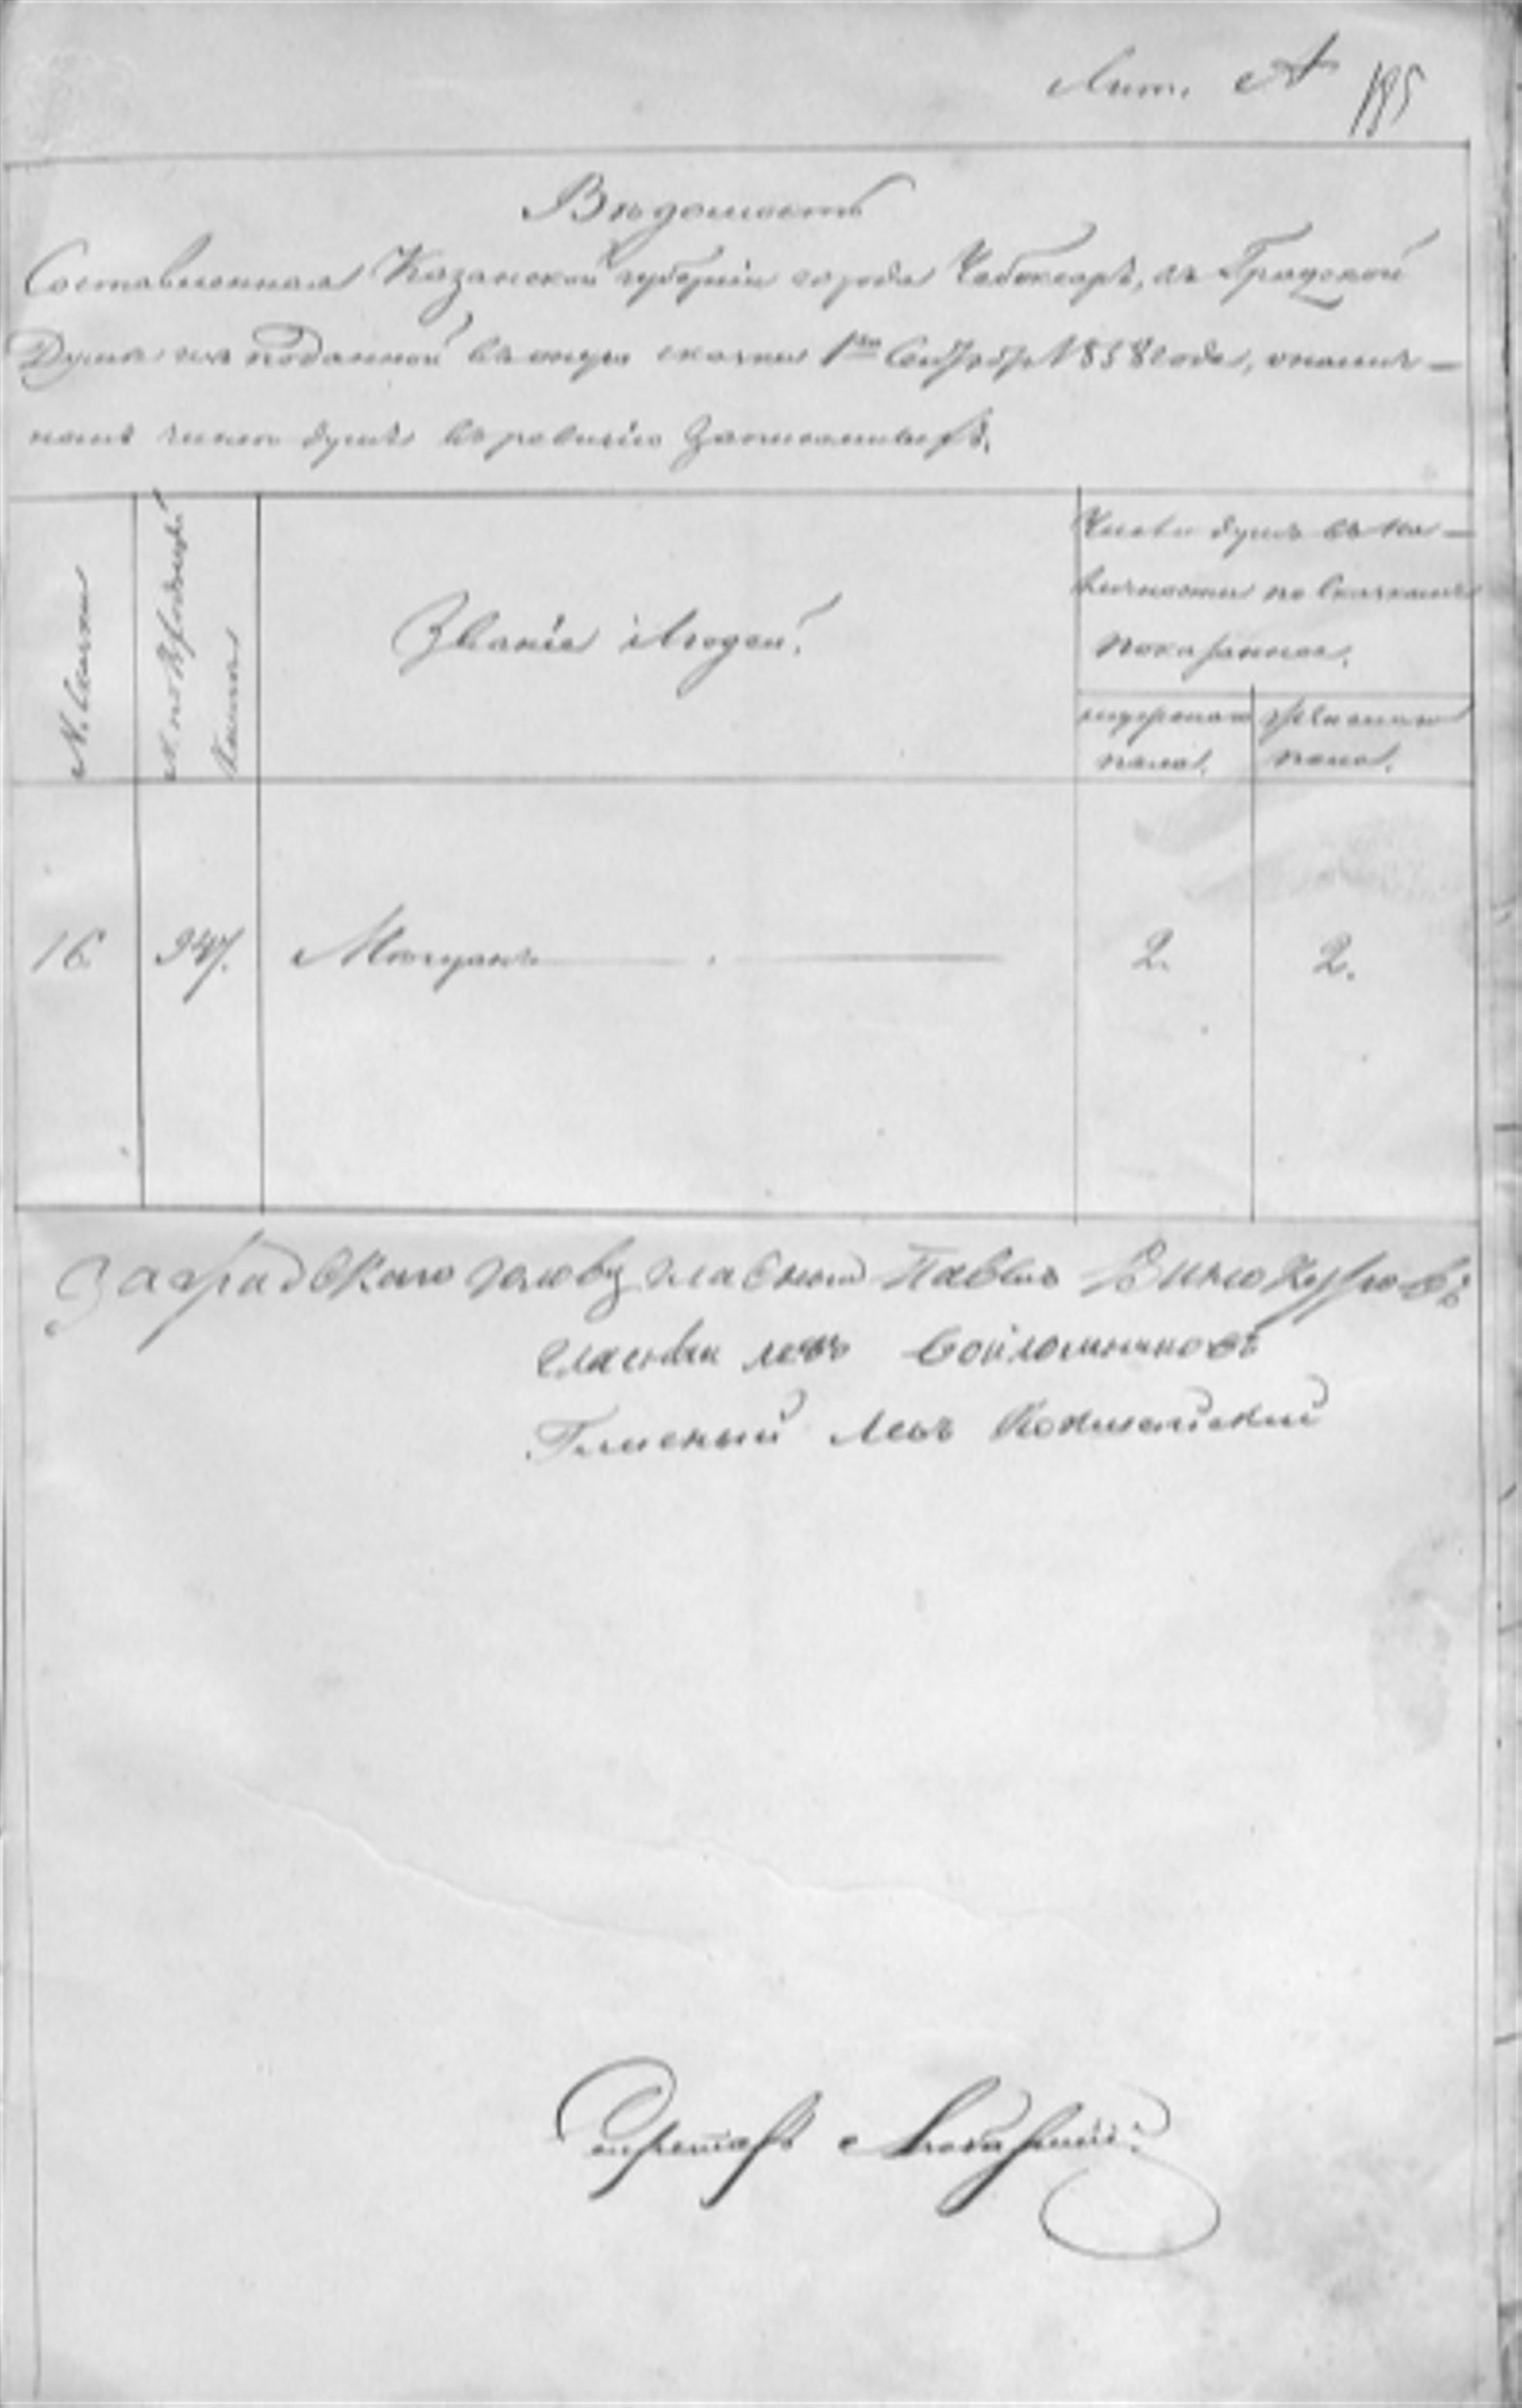 Лит. А 195
Вѣдомость
Составленная Казанской губерніи города Чебоксаръ, въ Градской
Думѣ изъ поданной въ оную сказки 1го Сентября 1858 года, о налич-
номъ числѣ душъ въ ревизію записанныхъ.
№ Сказки
№ по
Книгѣ
Званіе людей.
Число душъ въ на-
личности по сказкамъ
показанное.
мужеска женска
пола. пола.
16 947. Мѣщанъ 2. 2.
За градскаго голову гласный Павелъ Винокуровъ
Гласный
Гласный Левъ
Секретарь